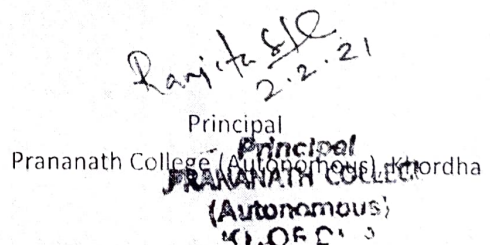 Ranjita
2.2.21
Principal
Prananath College (Autonomous), Khordha
Principal
PRANANATH COLLEGE
(Autonomous)